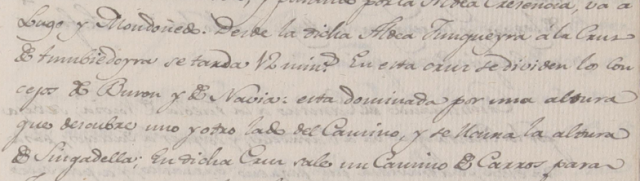 y pasando por la Aldea Cresencia, va a
Lugo y Mondoñedo. Desde la dicha Aldea Junqueyra à la Cruz
D Amubiedoyra se tarda 12 min.s En esta cruz se dividen los con
cejos D Buron y D Navia: esta dominada por una altura
que descubre uno y otro lado del Camino, y se llama la altura
D Singadella; En dicha Cruz sale un Camino D Carros para